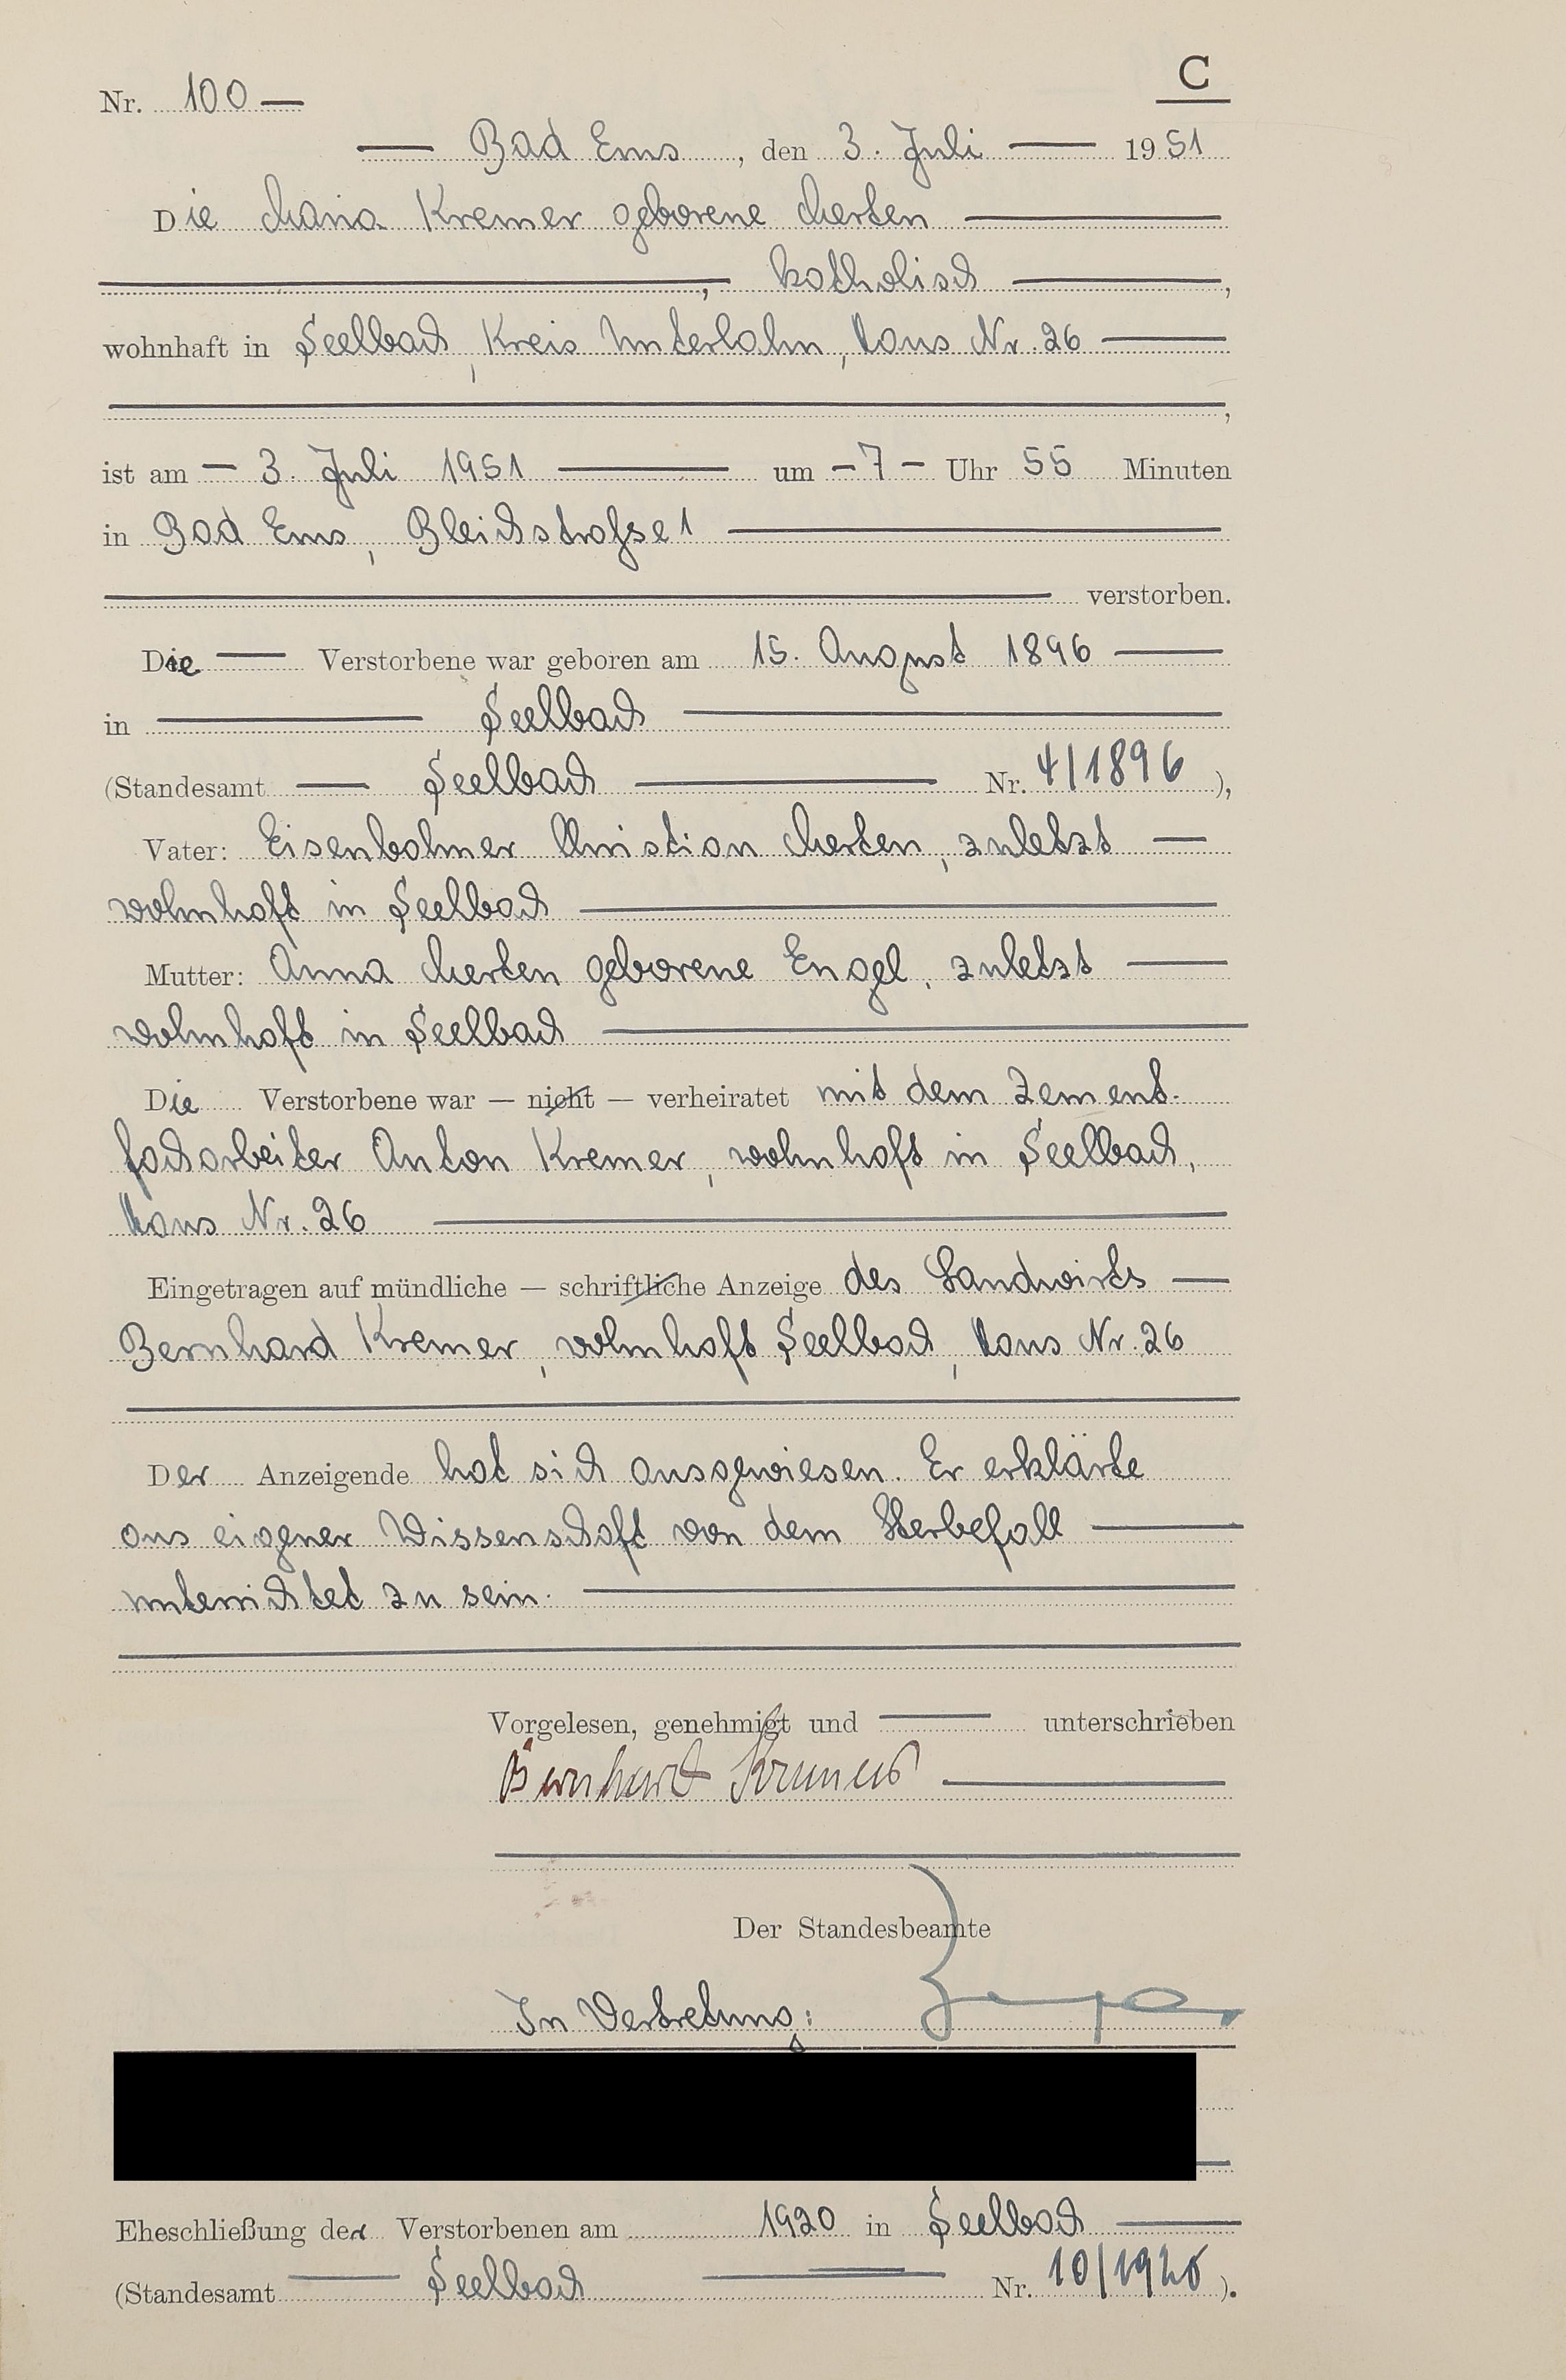 C
Nr. 100 —
— Bad Ems, den 3. Juli — 1951
Die Maria Kremer geborene Merten —
—, katholisch —,
wohnhaft in Seelbach, Kreis Unterlahn, Haus Nr. 26 —
—,
ist am — 3. Juli 1951 — um — 7 — Uhr 55 Minuten
in Bad Ems, Bleichstraße 1 —
— verstorben.
Die — Verstorbene war geboren am 15. August 1896 —
in — Seelbach —
(Standesamt — Seelbach — Nr. 4/1896),
Vater: Eisenbahner Christian Merten, zuletzt —
wohnhaft in Seelbach —
Mutter: Anna Merten geborene Engel, zuletzt —
wohnhaft in Seelbach —
Die Verstorbene war — nicht — verheiratet mit dem Zement-
facharbeiter Anton Kremer, wohnhaft in Seelbach,
Haus Nr. 26 —
Eingetragen auf mündliche — schriftliche Anzeige des Landwirts —
Bernhard Kremer, wohnhaft Seelbach, Haus Nr. 26
Der Anzeigende hat sich ausgewiesen. Er erklärte
aus eigener Wissenschaft von dem Sterbefall —
unterrichtet zu sein. —
Vorgelesen, genehmigt und — unterschrieben
Bernhard Kremer —
Der Standesbeamte
In Vertretung:
Eheschließung der Verstorbenen am 1920 in Seelbach —
(Standesamt — Seelbach — Nr. 10/1920).